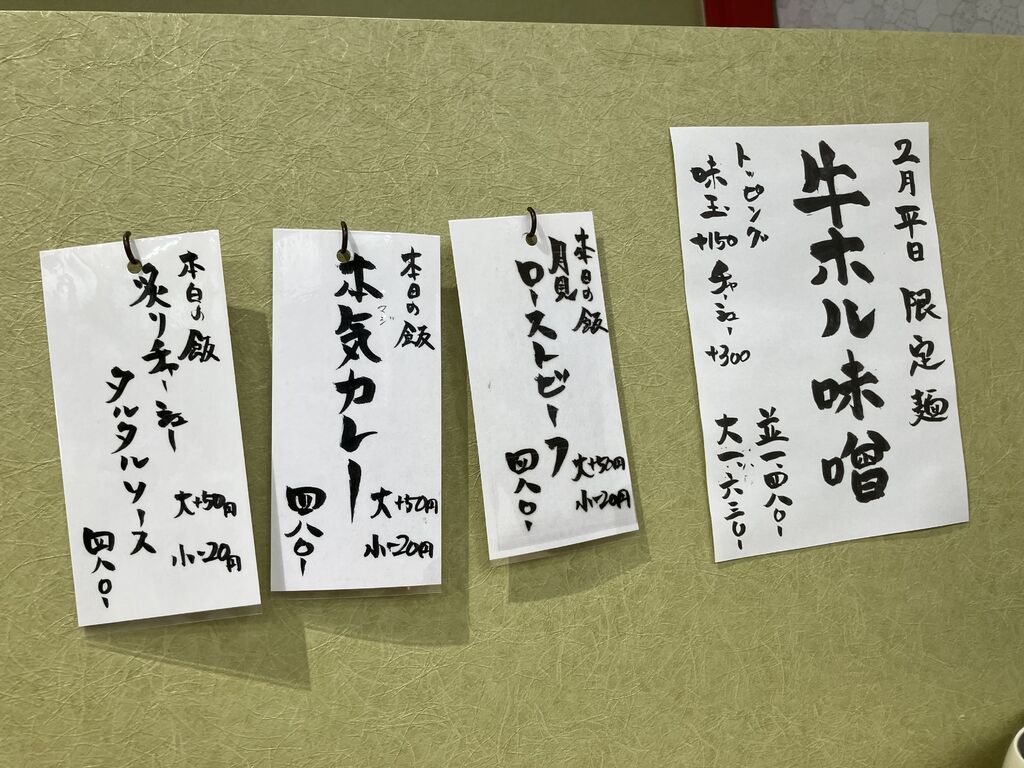 2月平日限定麺
牛ホル味噌
トッピング
味玉+150 チャーシュー+300
並一、四八〇-
大一、六三〇-
本日の飯
月見ローストビーフ
大+50円
小-20円
四八〇-
本日の飯
本気カレー
マジ
大+50円
小-20円
四八〇-
本日の飯
炙りチャーシュー
タルタルソース
大+50円
小-20円
四八〇-